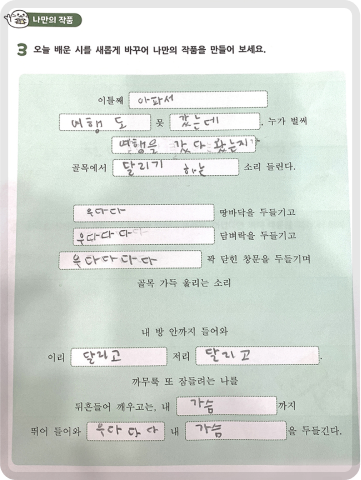 나만의 작품
3 오늘 배운 시를 새롭게 바꾸어 나만의 작품을 만들어 보세요.
이틀째 아파서
여행도 못 갔는데, 누가 벌써
여행을 갔다 왔는지
골목에서 달리기 하는 소리 들린다.
우다다 땅바닥을 두들기고
우다다다 담벼락을 두들기고
우다다다다 꽉 닫힌 창문을 두들기며
골목 가득 울리는 소리
내 방 안까지 들어와
이리 달리고 저리 달리고.
까무룩 또 잠들려는 나를
뒤흔들어 깨우고는, 내 가슴까지
뛰어 들어와 우다다다 내 가슴을 두들긴다.